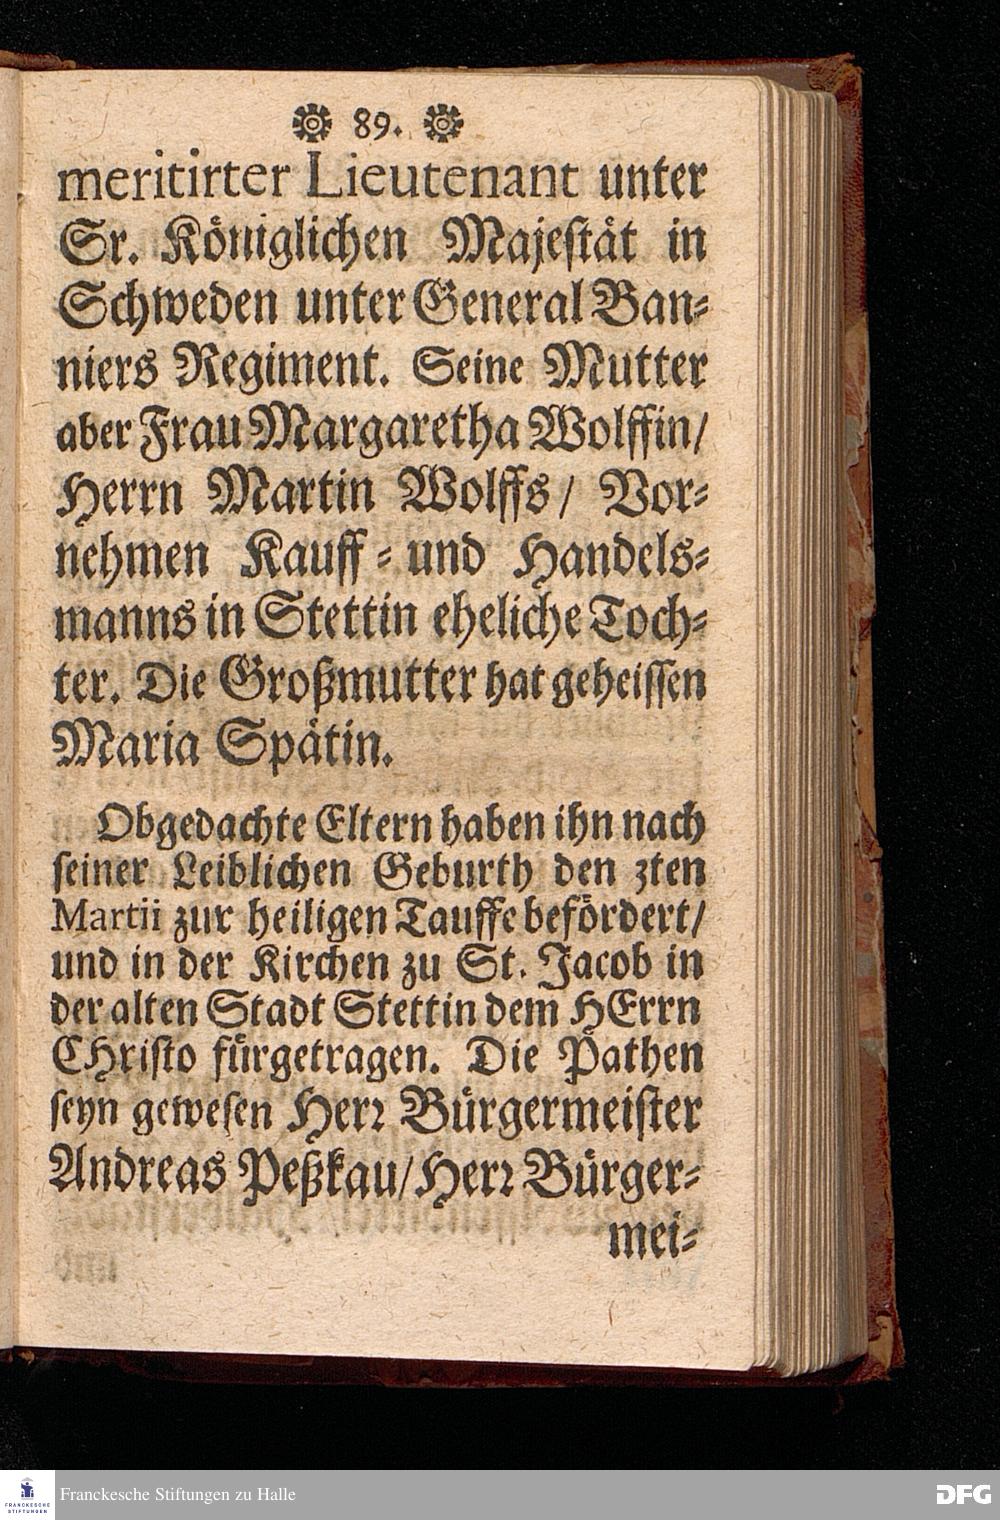 89.
meritirter Lieutenant unter
Sr. Königlichen Majestät in
Schweden unter General Ban-
niers Regiment. Seine Mutter
aber Frau Margaretha Wolffin/
Herrn Martin Wolffs/ Vor-
nehmen Kauff- und Handels-
manns in Stettin eheliche Toch-
ter. Die Großmutter hat geheissen
Maria Spätin.
Obgedachte Eltern haben ihn nach
seiner Leiblichen Geburth den 3ten
Martii zur heiligen Tauffe befördert/
und in der Kirchen zu St. Jacob in
der alten Stadt Stettin dem HErrn
CHristo fürgetragen. Die Pathen
seyn gewesen Herr Bürgermeister
Andreas Peßkau/ Herr Bürger-
mei-
FRANCKESCHE
STIFTUNGEN
Franckesche Stiftungen zu Halle
DFG